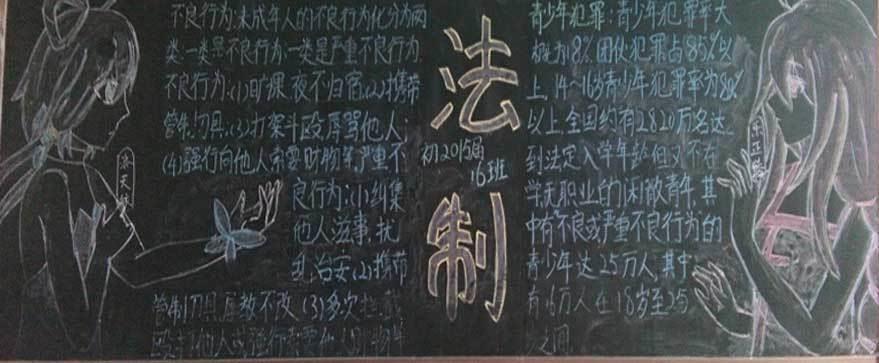 不良行为:未成年人的不良行为化分为两
类:一类是不良行为一类是严重不良行为
不良行为:(1)旷课,夜不归宿,(2)携带
管制刀具,(3)打架斗殴,辱骂他人;
(4)强行向他人索要财物等,严重不
良行为:(1)纠集
他人滋事,扰
乱治安(2)携带
管制刀具,屡教不改 (3)多次拦截
殴打他人或强行索要他人财物等
法
初2015届
16班
制
青少年犯罪:青少年犯罪率大
概为18%团伙犯罪占85%以
上,14~16岁青少年犯罪率为80%
以上,全国约有2820万名达
到法定入学年龄但又不在
学无职业的闲散青年,其
中有不良或严重不良行为的
青少年达25万人,其中
有16万人在18岁至25
之间